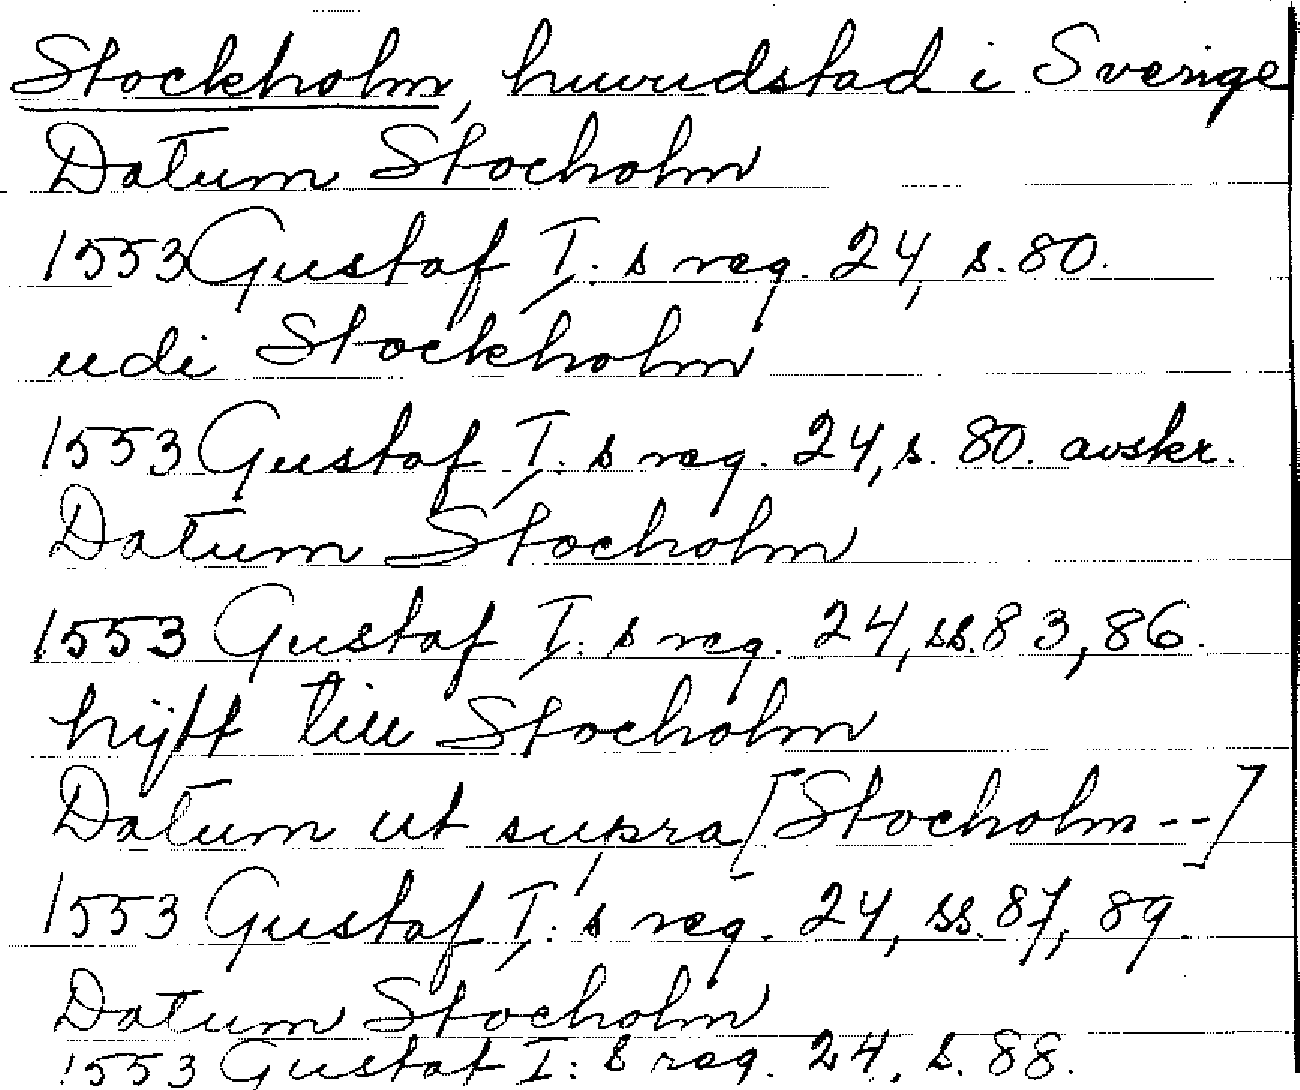 Stockholm, huvudstad i Sverige
Datum Stocholm
1553 Gustaf I: s reg. 24, s. 80.
udi Stockholm
1553 Gustaf I: s reg. 24, s. 80. avskr.
Datum Stocholm
1553 Gustaf I: s reg. 24, ss. 83, 86.
hijtt till Stocholm
Datum ut supra [Stocholm --]
1553 Gustaf I: s reg. 24, ss. 87, 89
Datum Stocholm
1553 Gustaf I: s reg. 24, s. 88.